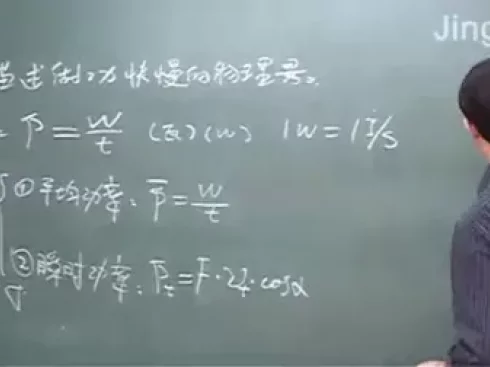 Jing
描述做功快慢的物理量。
P = W/t (瓦)(W) 1W = 1J/s
①平均功率: P̅ = W/t
②瞬时功率: Pₜ = F·vₜ·cosα